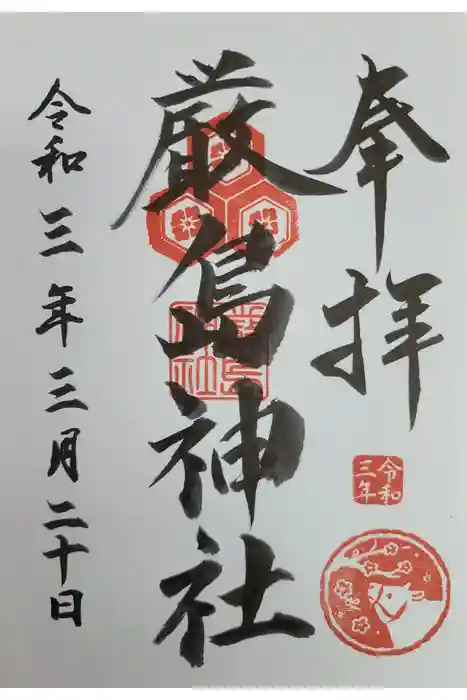 奉拝
令和
三年
厳島神社
厳島
神社
令和三年三月二十日